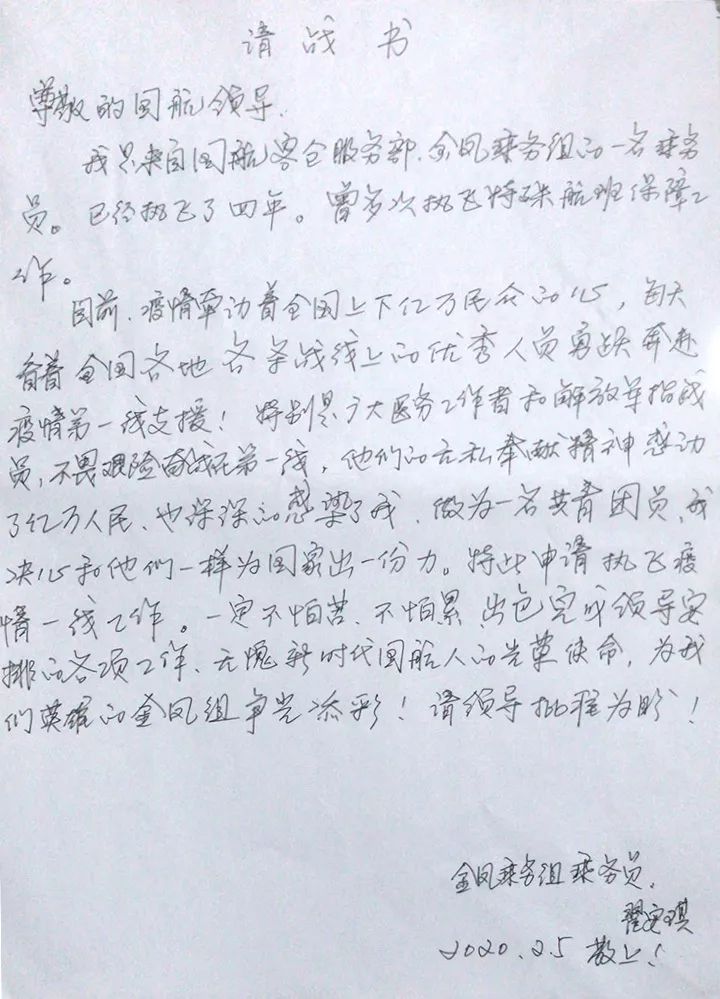 请战书
尊敬的国航领导.
我是来自国航客仓服务部.金凤乘务组的一名乘务
员。已经执飞了四年。曾多次执飞特殊航班保障工
作。
目前.疫情牵动着全国上下亿万民众的心,每天
看着全国各地各条战线上的优秀人员勇跃奔赴
疫情第一线支援!特别是广大医务工作者和解放军指战
员,不畏艰险奋战在第一线,他们的无私奉献精神感动
了亿万人民、也深深的感染了我.做为一名共青团员,我
决心和他们一样为国家出一份力。特此申请执飞疫
情一线工作。一定不怕苦.不怕累.出色完成领导安
排的各项工作、无愧新时代国航人的光荣使命,为我
们英雄的金凤组争光添彩!请领导批准为盼!
金凤乘务组乘务员.
翟安琪
2020.2.5 敬上!